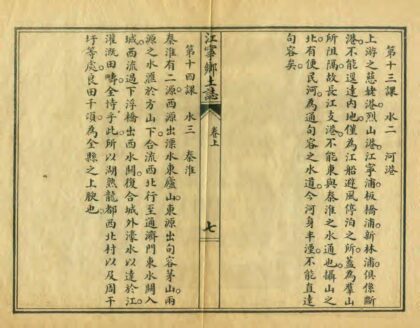 第十三課　水二　河港
上游之慈姥港。烈山港。江寧浦。板橋浦。新林浦。俱係斷
港。不能遠達內地。僅為江船避風停泊之所。蓋為羣山
所阻隔。故長江支港。不能東與秦淮之水通也。攝山之
北。有便民河。為通句容之水道。今河身半湮。不能直達
句容矣。
江寧鄉土誌　卷上　七
第十四課　水三　秦淮
秦淮有二源。西源出溧水東廬山。東源出句容茅山。兩
源之水。匯於方山下。合流西北行。至通濟門東水關入
城。西流過下浮橋。出西水關。復合城外濠水。以達於江。
灌溉田疇。全恃乎此。所以湖熟龍都西北村以及周干
圩等處。良田千頃。為全縣之上腴也。